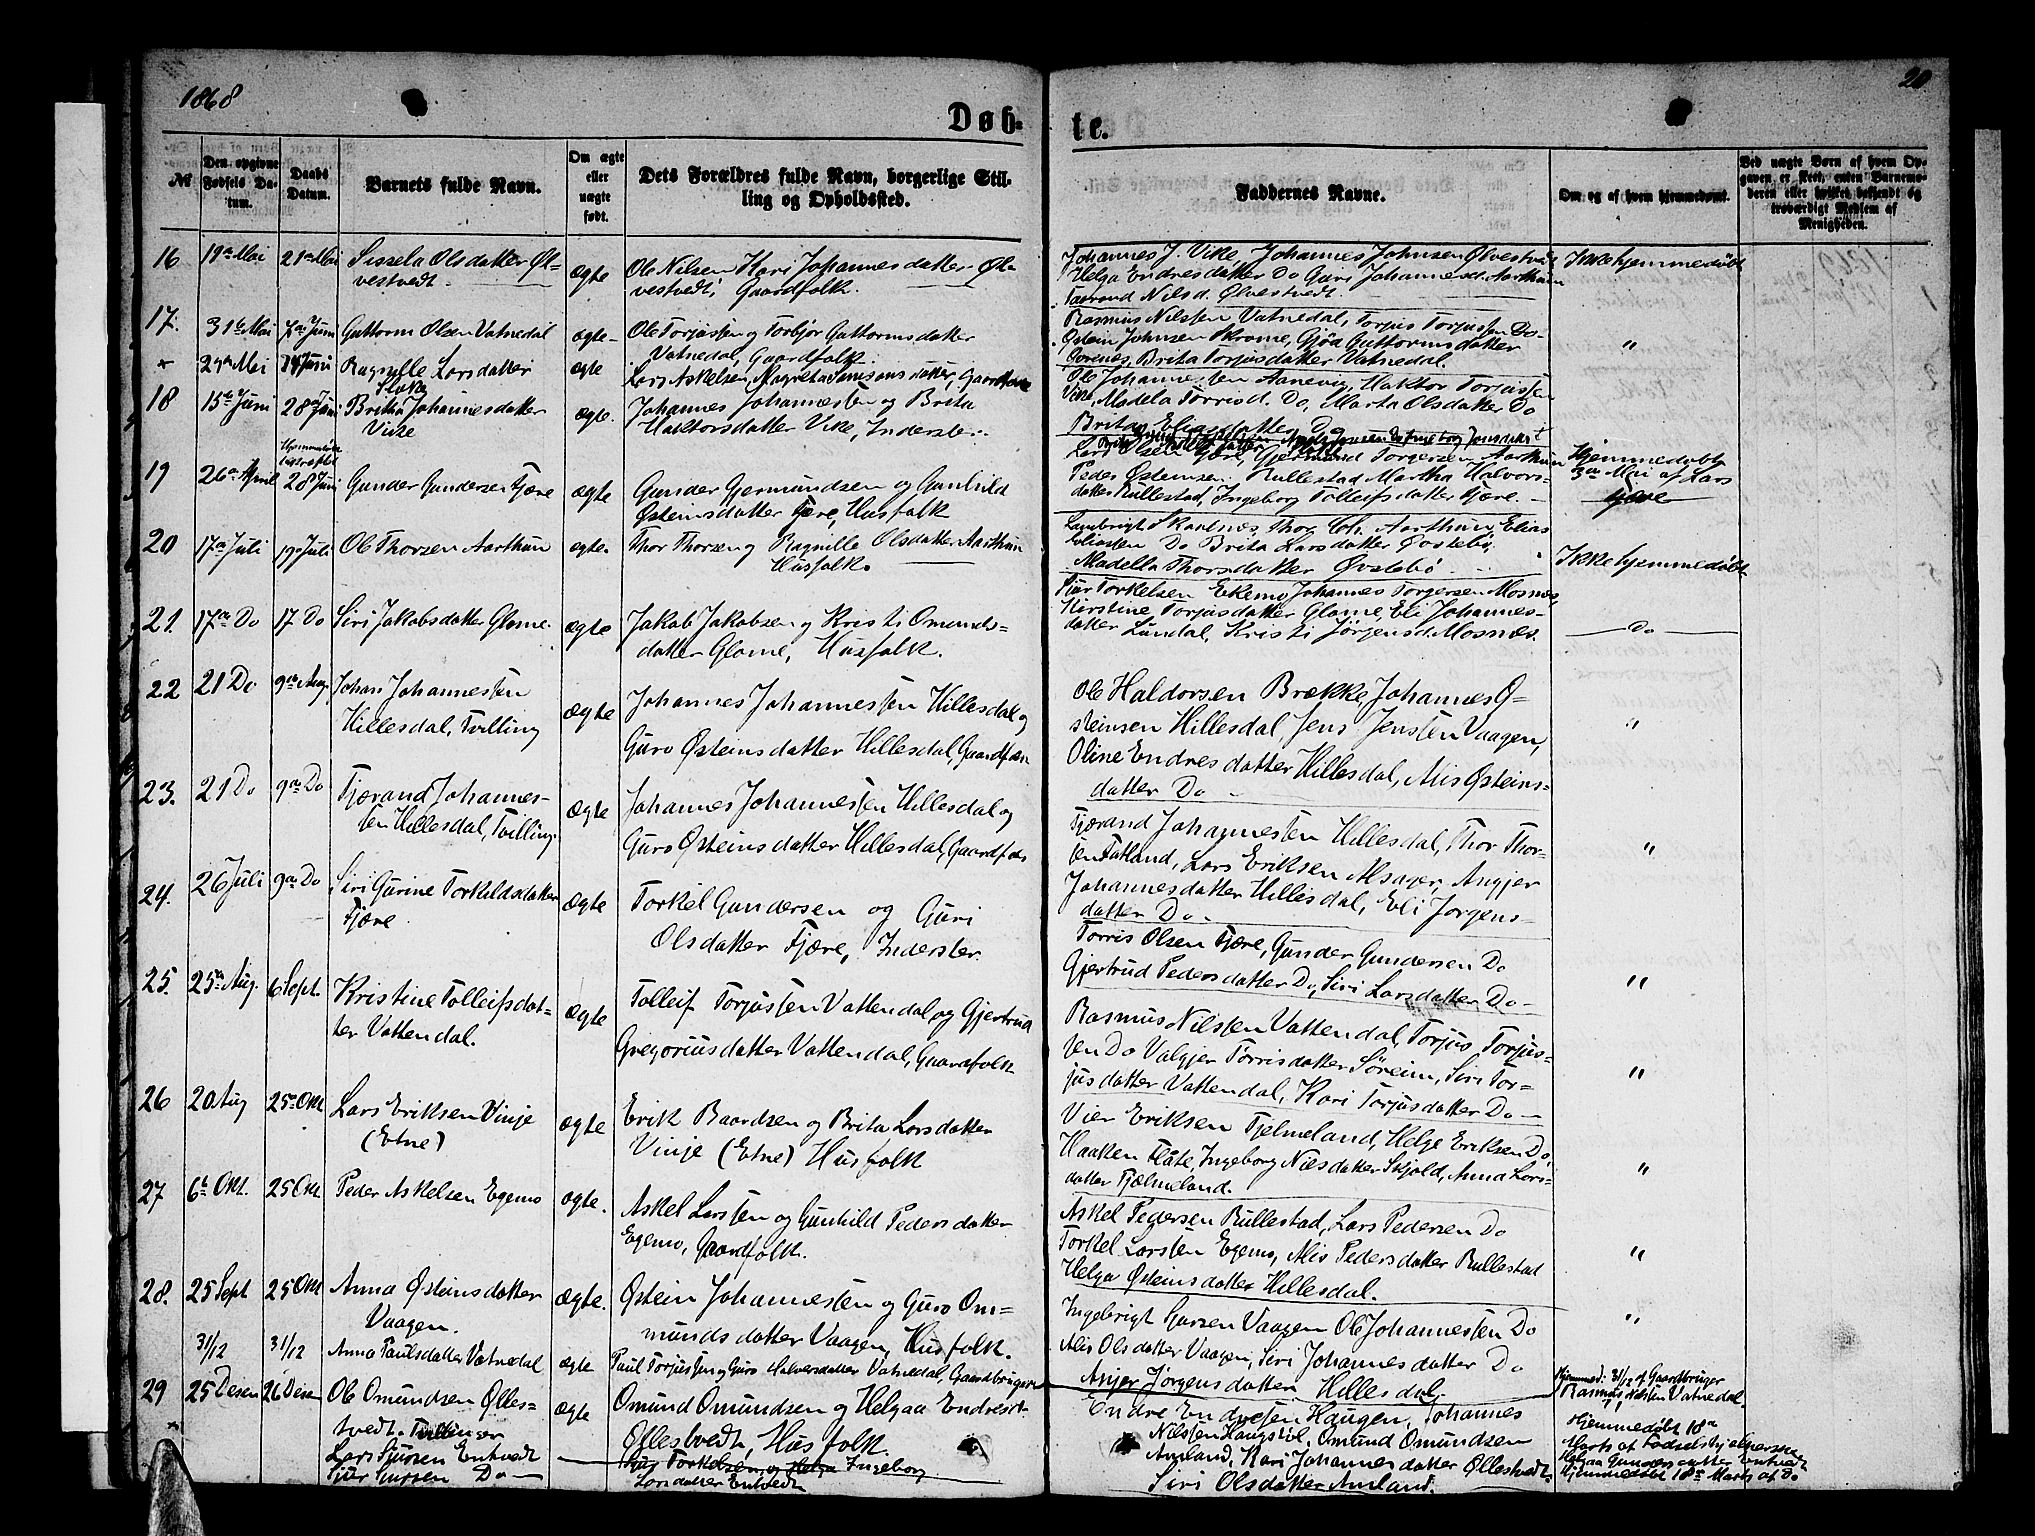 1868
20
Døb-
te.
№
Den opgivne Fødsels Datum.
Daabs Datum.
Barnets fulde Navn.
Om ægte eller uægte født.
Dets Forældres fulde Navn, borgerlige Stilling og Opholdssted.
Faddernes Navne.
Om og af hvem hjemmedøbt.
Ved uægte Børn af hvem Opgaven er skeet, enten Barnemoderen eller hvilket bekjendt og troværdigt Medlem af Menigheden.
16 19de Mai 21de Mai Sissela Olsdatter Øl-
vestvedt.
ægte
Ole Nilsen Kari Johannesdatter Øl-
vestvedt, Gaardfolk.
Johannes J. Vike, Johannes Johnsen Ølvestvedt
Helga Endresdatter Do Guri Johannesd. Aarthun
Taarand Nilsd. Ølvestvedt.
Ikke hjemmedøbt
17. 31te Mai 7de Juni Guttorm Olsen Vatnedal
ægte
Ole Torjussen og Torbjør Guttormsdatter
Vatnedal, Gaardfolk.
Rasmus Nilssen Vatnedal, Torjus Torjussen Do
Østein Johnsen Skrome, Gjøa Guttormsdatter
Gorenes, Brita Torjusdatter Vatnedal.
"
24de Mai 14 Juni Ragnille Larsdatter
Flaka
ægte
Lars Askelsen, Magreta Samsonsdatter, Gaardfolk
18 15de Juni 28de Juni Britha Johannesdatter
Vike
ægte.
Johannes Johannessen og Brita
Haktorsdatter Vike, Inderster.
Ole Johannessen Aanevig, Haktor Torjussen
Vike, Madela Torrisd. Do, Marta Olsdatter Do
Brita Eliasdatter Do
19 26de April
28 Juni
Gunder Gundersen Fjære
ægte
Gunder Gjermundsen og Gunhild
Østeinsdatter Fjære, Husfolk
Lars Olsen Fjære, Gjermund Torgersen Aarthun
Peder Østeinsen Rullestad Martha Halvors-
datter Rullestad, Ingeborg Tolleifsdatter Fjære.
Hjemmedøbt
3die Mai af Lars
Fjære
20 17de Juli 19 Juli Ole Thorsen Aarthun
ægte.
Thor Thorsen og Ragnille Olsdatter Aarthun
Husfolk.
Lambrigt Skartnes, Thor Aarthun, Elias
Eliassen Do Brita Larsdatter Øvstebø,
Madella Thorsdatter Øvstebø
Ikke hjemmedøbt
21. 17de Do 17 Do Siri Jakobsdatter Glome.
ægte
Jakob Jakobsen og Kristi Omunds-
datter Glome, Husfolk.
Sjur Torkelsen Ekemo, Johannes Torgersen Mosnes,
Kirstine Torjusdatter Glome, Eli Johannes-
datter Lundal, Kristi Jørgensd. Mosnes.
Do
22 21 Do 9de Aug Johan Johannessen
Hillesdal, Tvilling
ægte
Johannes Johannessen Hillesdal og
Guro Østeinsdatter Hillesdal, Gaardfolk
Ole Haldorsen Brække, Johannes Ø-
steinsen Hillesdal, Jens Jenssen Vaagen,
Oline Endresdatter Hillesdal, Alis Østeins-
datter Do
"
23. 21 Do 9de Do Fjærand Johannes-
sen Hillesdal, Tvilling
ægte
Johannes Johannessen Hillesdal og
Guro Østeinsdatter Hillesdal, Gaardfolk
Fjærand Johannessen Hillesdal, Thor Thor-
sen Fatland, Lars Eriksen Alsager, Angjer
Johannesdatter Hillesdal, Eli Jørgens-
datter Do
"
24. 26 Juli 9de Do Siri Gurine Torkildsdatter
Fjære
ægte
Torkel Gundersen og Guri
Olsdatter Fjære, Inderster
Torris Olsen Fjære, Gunder Gundersen Do
Gjertrud Pedersdatter Do, Siri Larsdatter Do
"
25. 25de Aug. 6 Sept. Kristine Tolleifsdat-
ter Vattendal.
ægte
Tolleif Torjussen Vattendal og Gjertrud
Gregoriusdatter Vattendal, Gaardfolk
Rasmus Nilssen Vattendal, Torjus Torjus-
sen Do Valgjer Torrisdatter Søreim, Siri Tor-
jusdatter Vattendal, Kari Torjusdatter Do
"
26 20 Aug 25de Okt Lars Eriksen Vinje
(Etne)
ægte
Erik Baardsen og Brita Larsdatter
Vinje (Etne) Husfolk
Vier Eriksen Tjelmeland, Helge Eriksen Do,
Haaken Flåte, Ingeborg Nilsdatter Skjold, Anna Lars-
datter Fjælmeland.
"
27 6te Okt. 25 Okt Peder Askelsen Egemo
ægte.
Askel Larssen og Gunhild Pedersdatter
Egemo, Gaardfolk.
Askel Pedersen Rullestad, Lars Pedersen Do
Torkel Larssen Egemo, Alis Pedersdatter Rullestad
Helga Østeinsdatter Hillesdal.
"
28. 25 Sept 25 Okt Anna Østeinsdatter
Vaagen.
ægte.
Østein Johannessen og Guro Om-
mundsdatter Vaagen, Husfolk.
Ingebrigt Sjursen Vaagen Ole Johannessen Do
Alis Olsdatter Vaagen, Siri Johannesdatter Do
Anjer Jørgensdatter Hillesdal.
"
31/12 31/12 Anna Paulsdatter Vatnedal
ægte
Paul Torjussen og Guro Halversdatter Vatnedal, Gaardbruger
Hjemmed: 31/12 af Gaardbruger
Rasmus Nilsen Vatnedal
29 25 Desem 26 Desem Ole Omundsen Ølles-
tvedt.
ægte
Omund Omundsen og Helgaa Endresdt.
Øllestvedt, Husfolk.
Endre Endresen Haugen, Johannes
Nilssen Haugstøl, Omund Omundsen
Amland, Kari Johannesdatter Øllestvedt
Siri Olsdatter Amland.
Tvillinger
Lars Sjursen Entvedt
Sjur Sjursen Do
Sjur Torkelsen og Helga Ingeborg
Larsdatter Entvedt
Hjemmedøbt 18de
Marts af Fødselshjælperske
Helgaa Gundersdatter Entvedt
Hjemmedøbt 18de Marts af Do